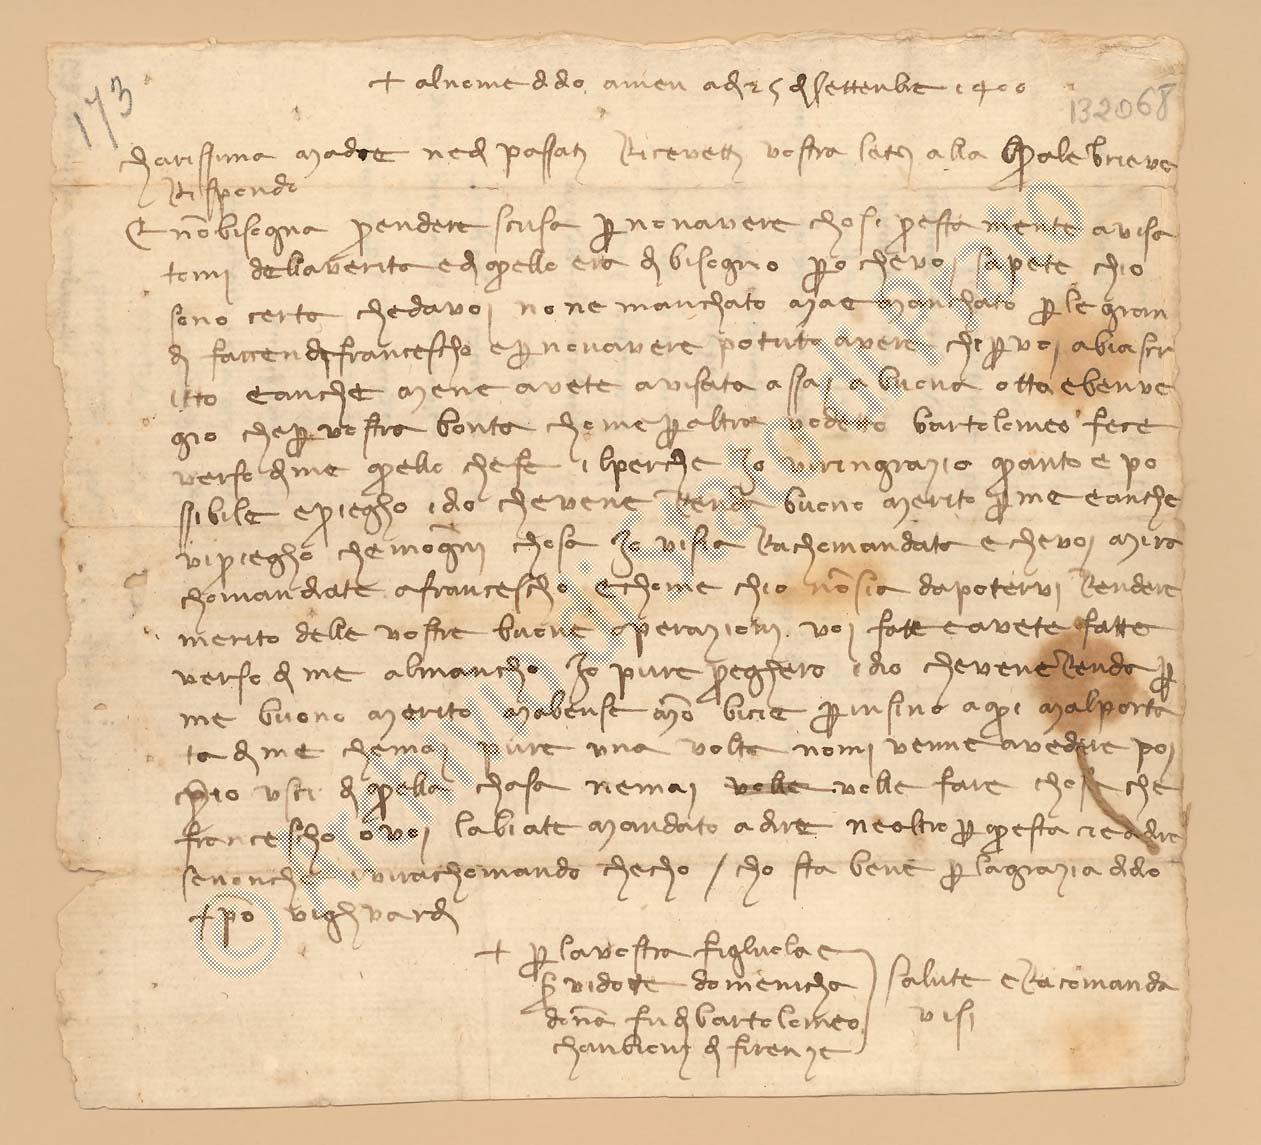 173
132068
+ al nome di dio amen a dì 25 di settenbre 1400
charissima madre ne dì passati ricevetti vostra letera alla quale brieve
rispondo
E non bisogna prendere scusa per non avere chosi presta mente avisa
tomi della verita e di quello era di bisogno pero che voi sapete chio
sono certa che da voi none manchato ma e manchato per le gran
di faccende di francescho e per non avere potuto avere chi per voi abia scr
itto e anche mene avete avisata assai a buona otta e ben ve
gio che per vostra bonta chome per altra vo detto bartolomeo fece
verso di me quello che fe il perche Io vi ringrazio quanto e po
ssibile e priegho idio che vene renda buono merito per me e anche
vi priegho che in ogni chosa Io vi sia rachomandata e che voi mi ra
chomandiate a francescho e chome chio non sia da potervi rendere
merito delle vostre buone operazioni voi fate e avete fatte
verso di me almancho Io pure pregherro idio che vene renda per
me buono merito ma bense mo bicie per insino a qui mal porta
ta di me che mai pure una volta nomi venne a vedere poi
chio usci di quella chasa ne mai volle volle fare chosa che
francescho o voi labiate mandato a dire ne altro per questa vi e a dire
se non che vi rachomando checho / cho sta bene per la grazia di dio
+po vi ghuardi
+ per la vostra figluola e
servidore domenicha
donna fu di bartolomeo
chanbioni di firenze
salute e racomanda
visi
© Archivio di Stato di Prato